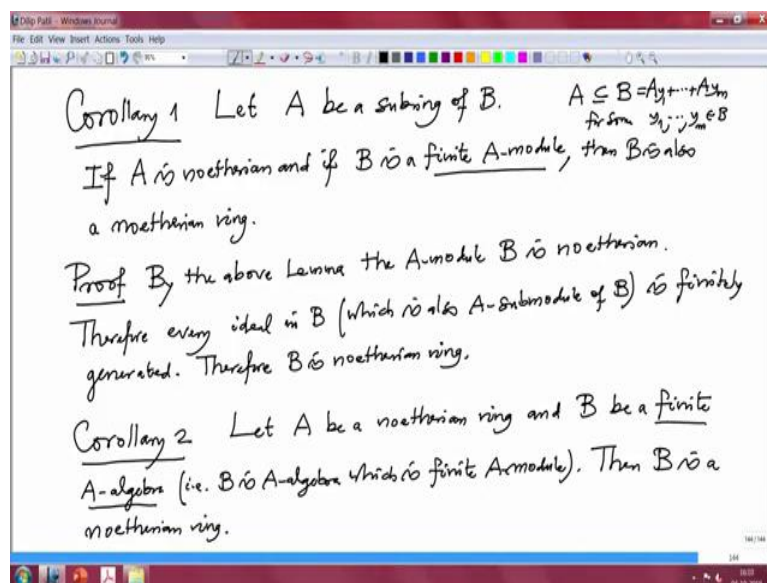 Dilip Patil - Windows Journal
File Edit View Insert Actions Tools Help
Corollary 1 Let A be a subring of B. A ⊆ B = Ay₁+⋯+Ayₘ
for some y₁,⋯,yₘ ∈ B
If A is noetherian and if B is a finite A-module, then B is also
a noetherian ring.
Proof By the above Lemma the A-module B is noetherian.
Therefore every ideal in B (which is also A-submodule of B) is finitely
generated. Therefore B is noetherian ring.
Corollary 2 Let A be a noetherian ring and B be a finite
A-algebra (i.e. B is A-algebra which is finite A-module). Then B is a
noetherian ring.
144/144
144